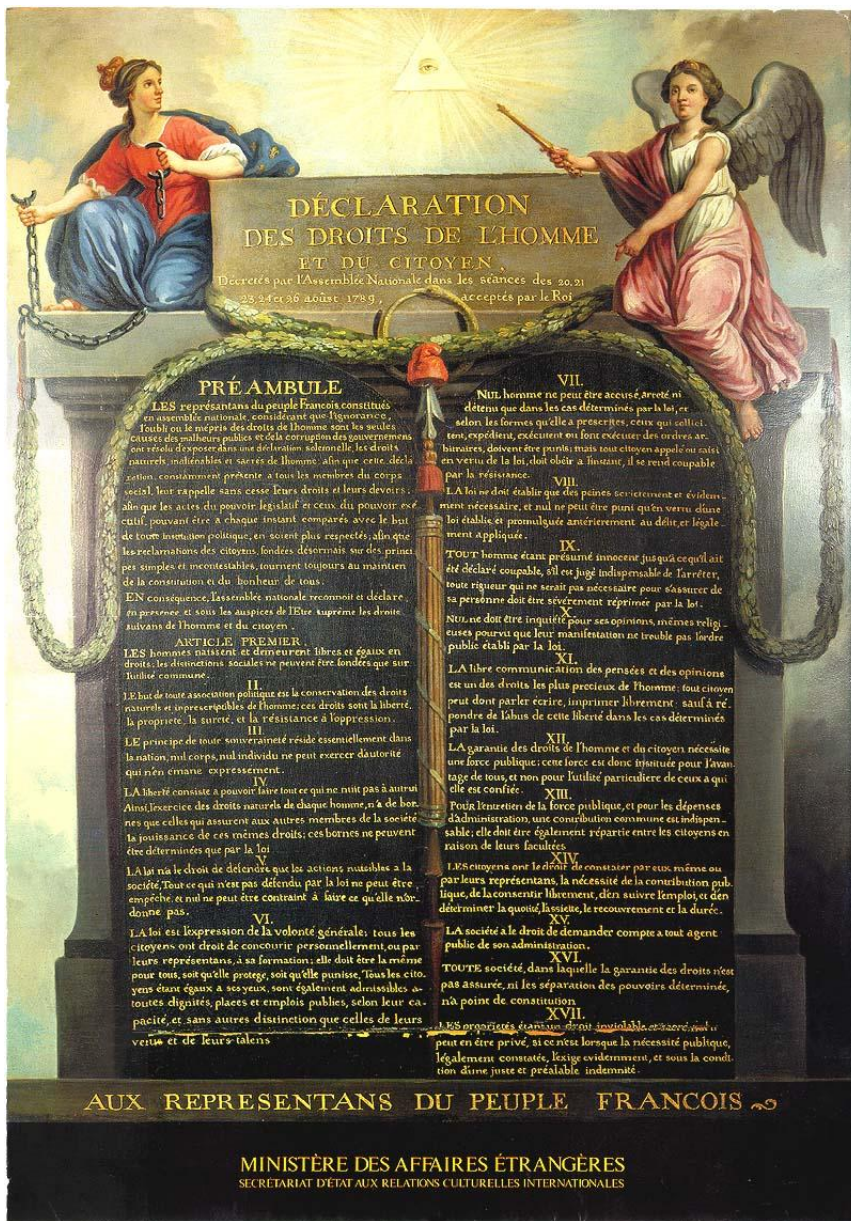 DÉCLARATION
DES DROITS DE L'HOMME
ET DU CITOYEN,
Décretés par l'Assemblée Nationale dans les séances des 20, 21
23, 24 et 26 août 1789, acceptés par le Roi
PRÉAMBULE
LES représantans du peuple Francois, constitués
en assemblée nationale, considérant que l'ignorance,
l'oubli ou le mépris des droits de l'homme sont les seules
causes des malheurs publics et de la corruption des gouvernemens
ont résolu d'exposer dans une déclaration solemnelle, les droits
naturels, inaliénables et sacrés de l'homme; afin que cette décla
ration, constamment présente a tous les membres du corps
social, leur rappelle sans cesse leurs droits et leurs devoirs;
afin que les actes du pouvoir législatif et ceux du pouvoir exé
cutif, pouvant être a chaque instant comparés avec le but
de toute institution politique, en soient plus respectés; afin que
les reclamations des citoyens, fondées désormais sur des princi
pes simples et incontestables, tournent toujours au maintien
de la constitution et du bonheur de tous.
EN conséquence, l'assemblée nationale reconnoit et déclare
en presence et sous les auspices de l'Etre suprême les droits
suivans de l'homme et du citoyen.
ARTICLE PREMIER.
LES hommes naissent et demeurent libres et égaux en
droits; les distinctions sociales ne peuvent être fondées que sur
l'utilité commune.
II.
LE but de toute association politique est la conservation des droits
naturels et inprescriptibles de l'homme; ces droits sont la liberté,
la propriete, la sureté, et la résistance à l'oppression.
III.
LE principe de toute souveraineté réside essentiellement dans
la nation, nul corps, nul individu ne peut exercer d'autorité
qui n'en émane expressement.
IV.
LA liberté consiste a pouvoir faire tout ce qui ne nuit pas à autrui
Ainsi, l'exercice des droits naturels de chaque homme, n'a de bor-
nes que celles qui assurent aux autres membres de la société
la jouissance de ces mêmes droits; ces bornes ne peuvent
être déterminées que par la loi.
V.
LA loi n'a le droit de défendre que les actions nuisibles a la
société, Tout ce qui n'est pas défendu par la loi ne peut être
empêché, et nul ne peut être contraint à faire ce qu'elle n'or-
donne pas.
VI.
LA loi est l'expression de la volonté générale; tous les
citoyens ont droit de concourir personnellement, ou par
leurs représentans, à sa formation; elle doit être la même
pour tous, soit qu'elle protege, soit qu'elle punisse, Tous les cito-
yens étant égaux a ses yeux, sont également admissibles a
toutes dignités, places et emplois publics, selon leur ca-
pacité, et sans autres distinction que celles de leurs
vertus et de leurs talens
VII.
NUL homme ne peut être accusé, arreté ni
détenu que dans les cas déterminés par la loi, et
selon les formes qu'elle a prescrites, ceux qui sollici-
tent, expédient, exécutent ou font exécuter des ordres ar-
bitraires, doivent être punis; mais tout citoyen appelé ou saisi
en vertu de la loi, doit obéir a l'instant, il se rend coupable
par la résistance.
VIII.
LA loi ne doit établir que des peines strictement et évidem-
ment nécessaire, et nul ne peut être puni qu'en vertu d'une
loi établie et promulguée antérieurement au délit, et légale-
ment appliquée.
IX.
TOUT homme étant présumé innocent jusqu'a ce qu'il ait
été déclaré coupable, s'il est jugé indispensable de l'arrêter,
toute rigueur qui ne serait pas nécessaire pour s'assurer de
sa personne doit être sévèrement réprimée par la loi.
X.
NUL ne doit être inquiété pour ses opinions, mêmes religi-
euses pourvu que leur manifestation ne trouble pas l'ordre
public établi par la loi.
XI.
LA libre communication des pensées et des opinions
est un des droits les plus precieux de l'homme; tout citoyen
peut donc parler écrire, imprimer librement: sauf à ré-
pondre de l'abus de cette liberté dans les cas déterminés
par la loi.
XII.
LA garantie des droits de l'homme et du citoyen nécessite
une force publique; cette force est donc instituée pour l'avan-
tage de tous, et non pour l'utilité particuliere de ceux a qui
elle est confiée.
XIII.
POUR l'entretien de la force publique, et pour les dépenses
d'administration, une contribution commune est indispen-
sable; elle doit être également répartie entre les citoyens en
raison de leurs facultées
XIV.
LES citoyens ont le droit de constater par eux même ou
par leurs représentans, la nécessité de la contribution pub-
lique, de la consentir librement, d'en suivre l'emploi, et d'en
déterminer la quotité, l'assiette, le recouvrement et la durée.
XV.
LA société a le droit de demander compte a tout agent
public de son administration.
XVI.
TOUTE société, dans laquelle la garantie des droits n'est
pas assurée, ni les séparation des pouvoirs déterminée,
n'a point de constitution
XVII.
LES propriétés étant un droit inviolable et sacré, nul ne
peut en être privé, si ce n'est lorsque la nécessité publique,
légalement constatée, l'exige evidemment, et sous la condi-
tion d'une juste et préalable indemnité.
AUX REPRESENTANS DU PEUPLE FRANCOIS
MINISTÈRE DES AFFAIRES ÉTRANGÈRES
SECRÉTARIAT D'ÉTAT AUX RELATIONS CULTURELLES INTERNATIONALES